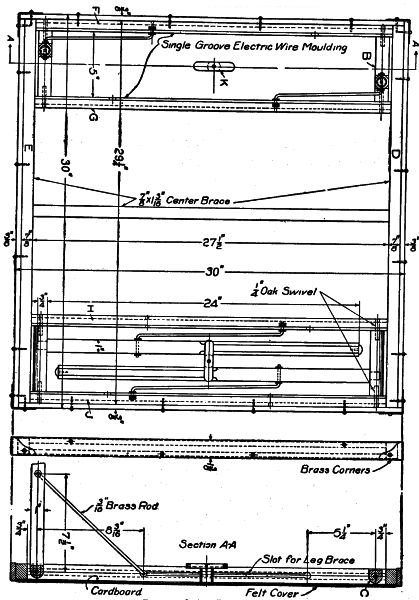 F
A
A
Single Groove Electric Wire Moulding
B
5"
K
G
E
D
30"
29¼"
⅞"x1 3/16" Center Brace
27½"
30"
24"
¼" Oak Swivel
H
J
Brass Corners
3/16" Brass Rod
7½"
Section AA
5¼"
¾"
Slot for Leg Brace
C
Cardboard
Felt Cover